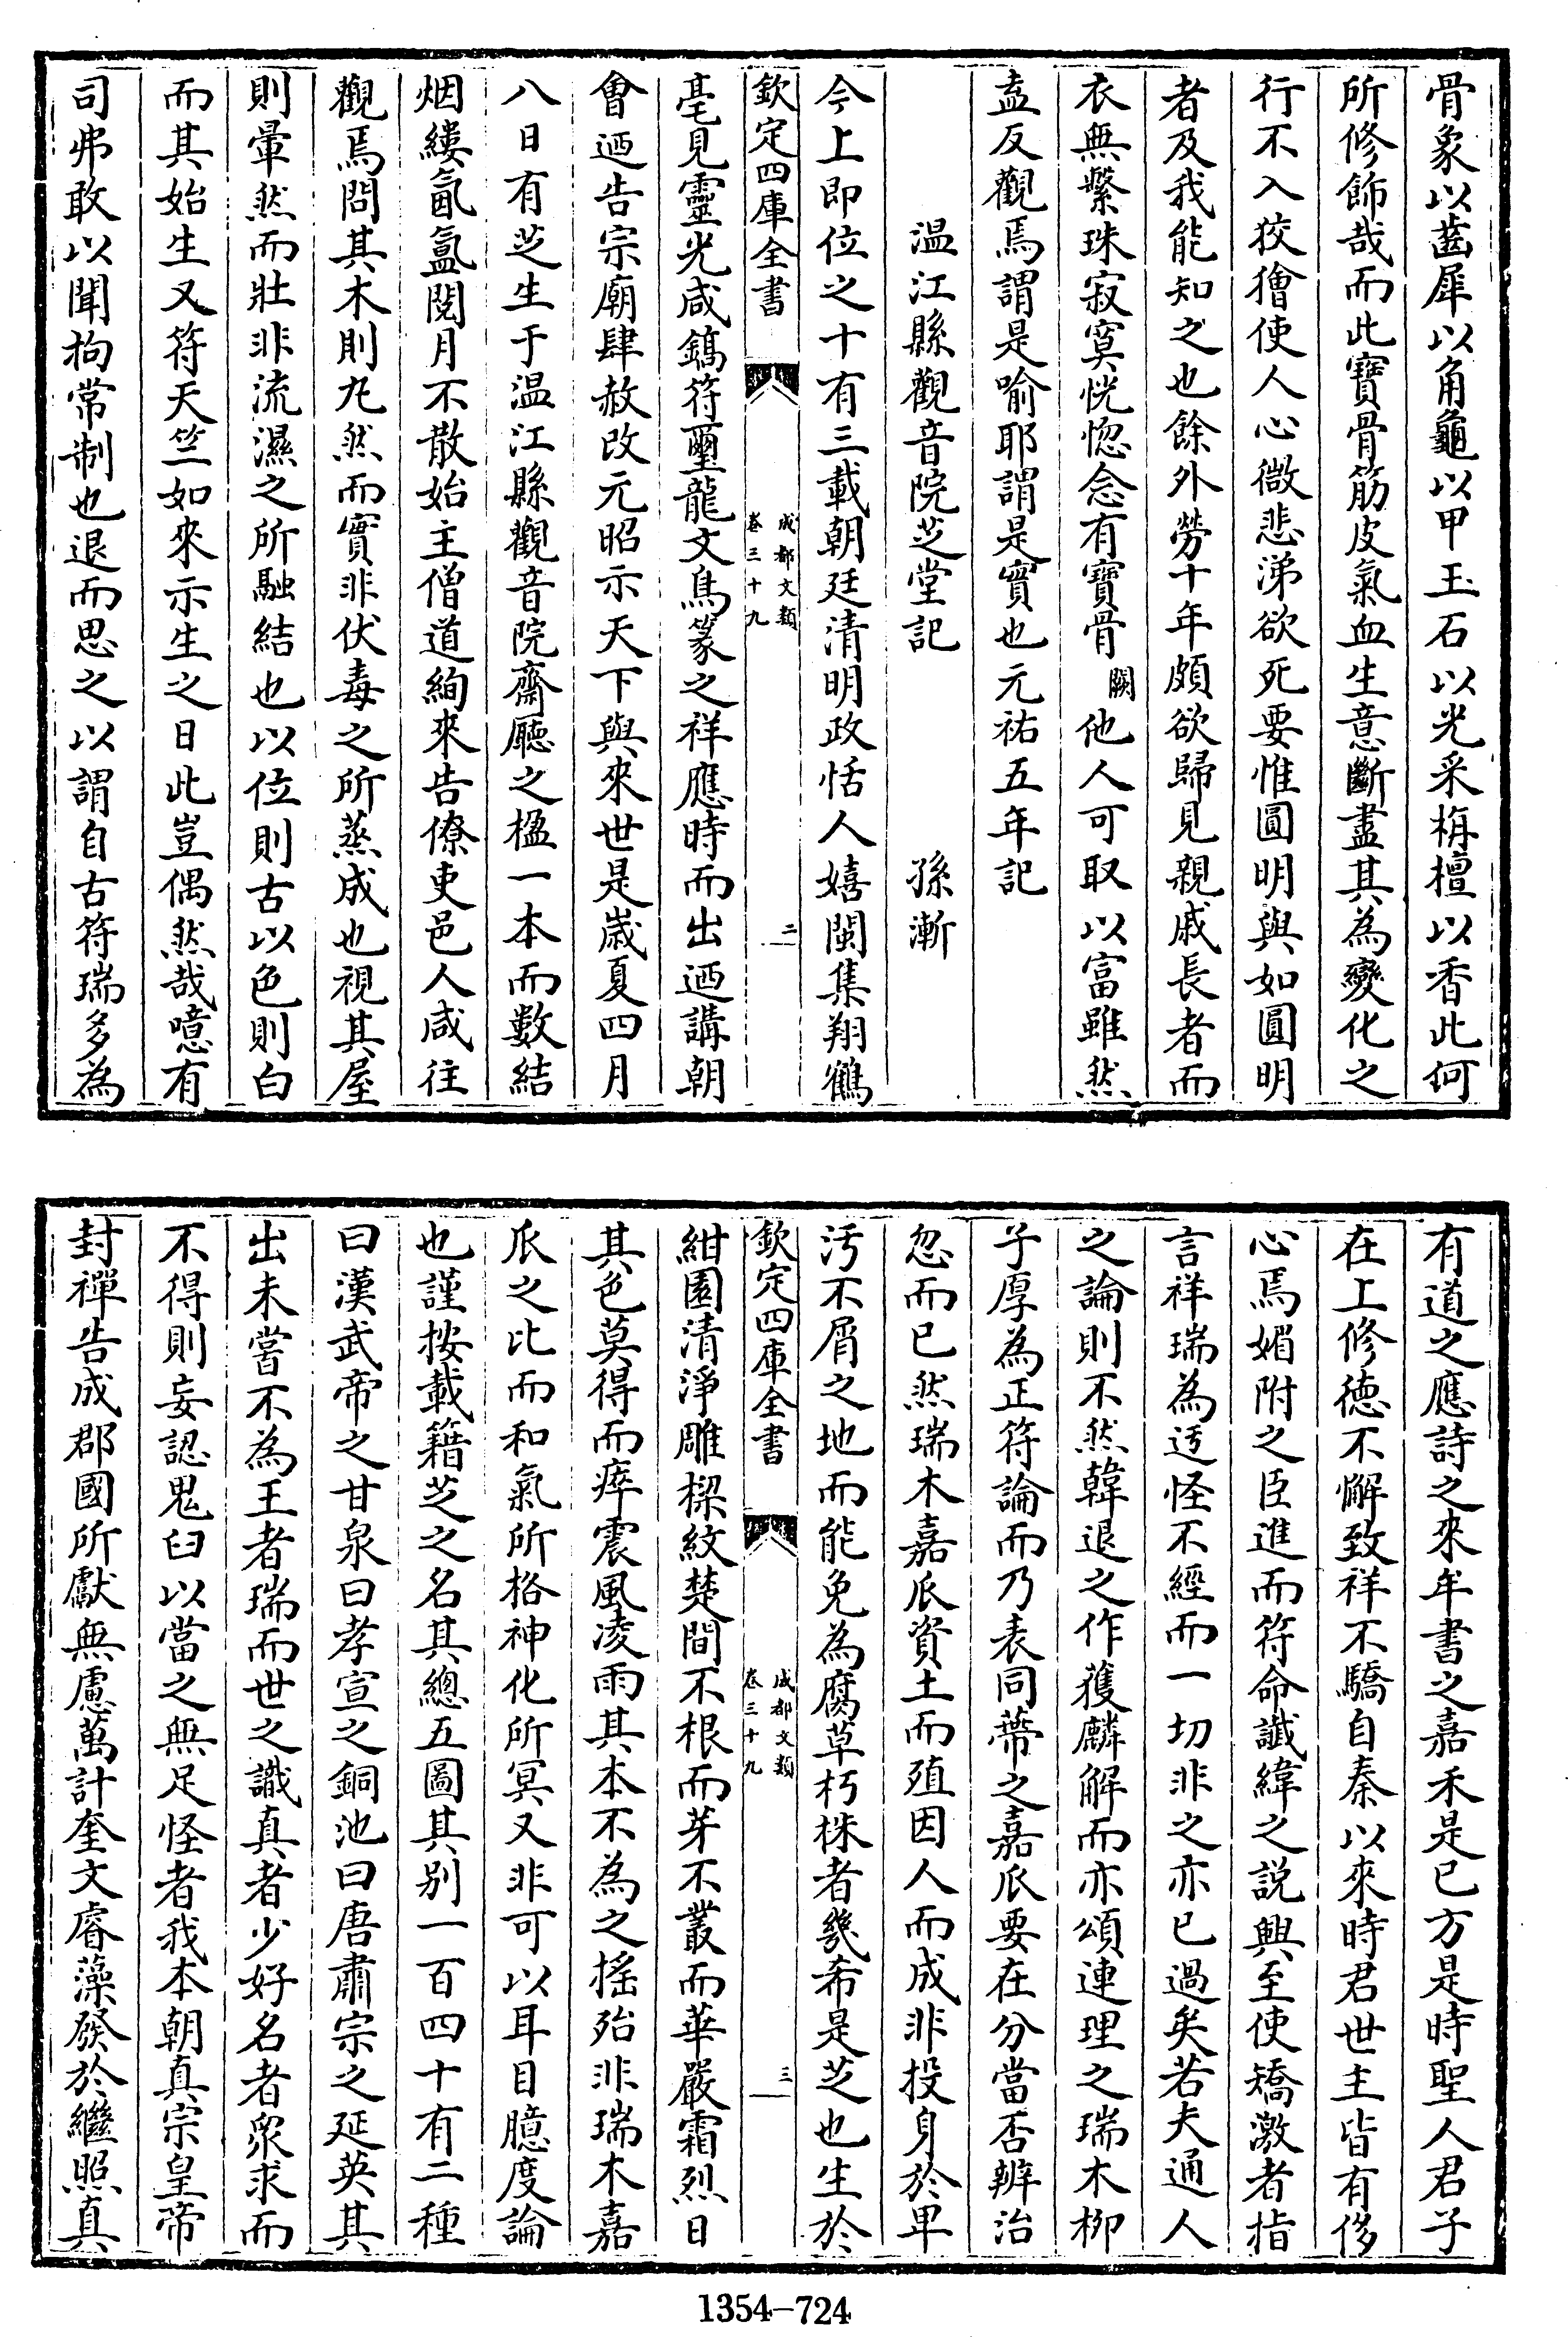 骨象以齒犀以角龜以甲玉石以光采栴檀以香此何
所修飾哉而此寶骨筋皮氣血生意斷盡其為變化之
行不入狡獪使人心微悲涕欲死要惟圓明與如圓明
者及我能知之也餘外勞十年頗欲歸見親戚長者而
衣無繫珠寂寞恍惚念有寶骨闕他人可取以富雖然
盍反觀焉謂是喻耶謂是實也元祐五年記
温江縣觀音院芝堂記 孫漸
今上即位之十有三載朝廷清明政恬人嬉閩集翔鶴
欽定四庫全書
成都文類
卷三十九
二
亳見靈光咸鎬符璽龍文鳥篆之祥應時而出迺講朝
會迺告宗廟肆赦改元昭示天下與來世是歲夏四月
八日有芝生于温江縣觀音院齋廳之楹一本而數結
烟縷氤氲閱月不散始主僧道絢來告僚吏邑人咸往
觀焉問其木則㞦然而實非伏毒之所蒸成也視其屋
則暈然而壯非流濕之所融結也以位則古以色則白
而其始生又符天竺如來示生之日此豈偶然哉噫有
司弗敢以聞拘常制也退而思之以謂自古符瑞多為
有道之應詩之來牟書之嘉禾是已方是時聖人君子
在上修德不懈致祥不驕自秦以來時君世主皆有侈
心焉媚附之臣進而符命讖緯之説興至使矯激者指
言祥瑞為迃怪不經而一切非之亦已過矣若夫通人
之論則不然韓退之作獲麟解而亦頌連理之瑞木栁
子厚為正符論而乃表同蔕之嘉瓜要在分當否辨治
忽而已然瑞木嘉瓜資土而殖因人而成非投身於卑
汚不屑之地而能免為腐草朽株者幾希是芝也生於
欽定四庫全書
成都文類
卷三十九
三
紺園清淨雕樑紋楚間不根而芽不叢而華嚴霜烈日
其色莫得而瘁震風凌雨其本不為之揺殆非瑞木嘉
瓜之比而和氣所格神化所冥又非可以耳目臆度論
也謹按載籍芝之名其總五圖其别一百四十有二種
曰漢武帝之甘泉曰孝宣之銅池曰唐肅宗之延英其
出未嘗不為王者瑞而世之識真者少好名者衆求而
不得則妄認鬼臼以當之無足怪者我本朝真宗皇帝
封禪告成郡國所獻無慮萬計奎文睿藻發於繼照真
1354—724